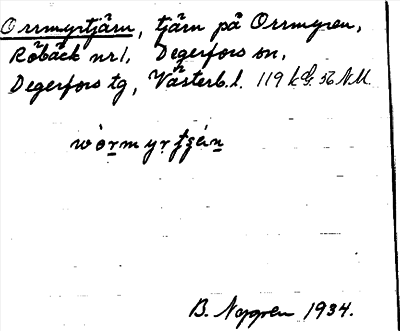 Orrmyrtjärn, tjärn på Orrmyren,
Röbäck nr 1, Degerfors sn,
Degerfors tg, Västerb. l. 119 56 N.M.
B. Nygren 1934.